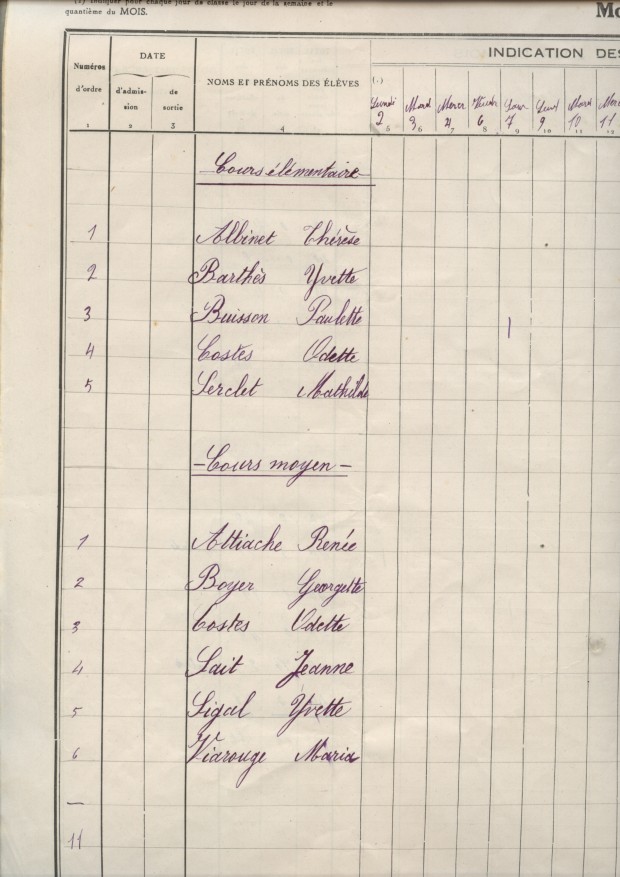 (1) Indiquer pour chaque jour de classe le jour de la semaine et le
quantième du MOIS.
Mo
INDICATION DES
Numéros d'ordre
DATE
d'admission
de sortie
NOMS ET PRÉNOMS DES ÉLÈVES
(1)
Lundi 2 Mard 3 Mercr 4 Vendr 6 7 Lund 9 Mard 10 Mer 11
1 2 3 4 5 6 7 8 9 10 11 12
Cours élémentaire
1 Albinet Thérèse
2 Barthès Yvette
3 Buisson Paulette
4 Costes Odette
5 Serclet Mathilde
- Cours moyen -
1 Attiache Renée
2 Boyer Georgette
3 Costes Odette
4 Sait Jeanne
5 Sigal Yvette
6 Viarouge Maria
—
11